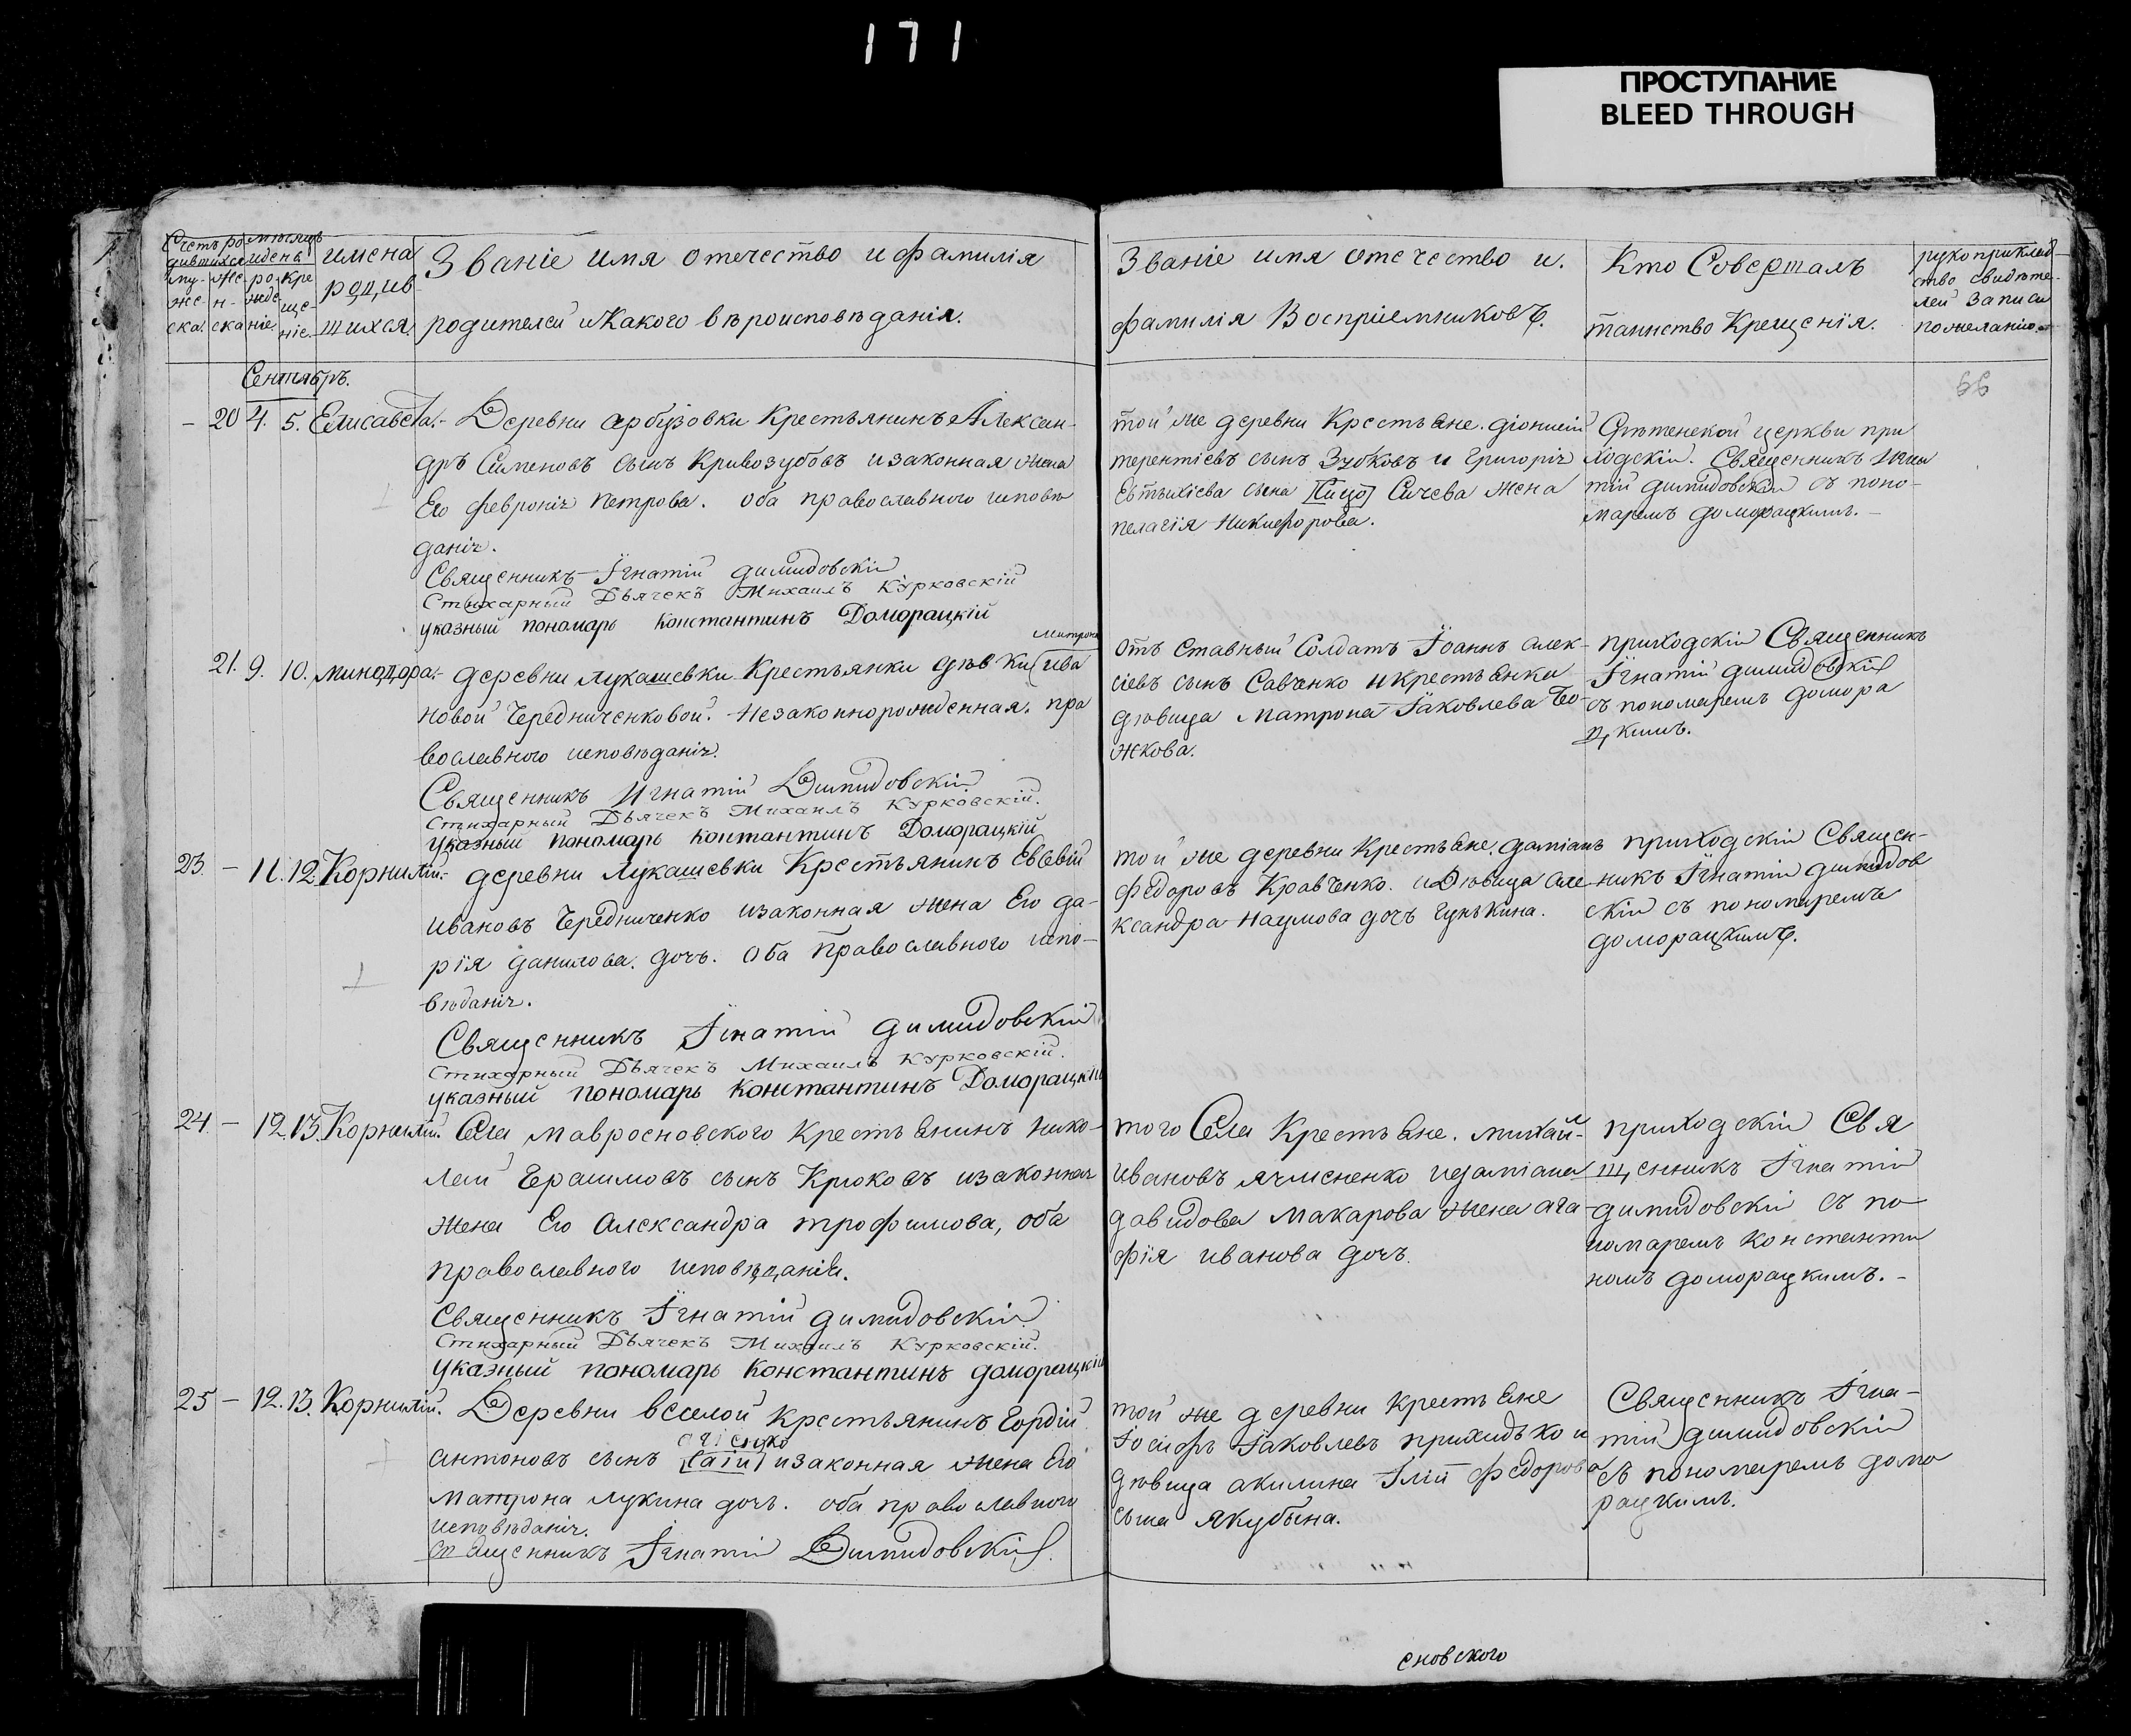 171
ПРОСТУПАНИЕ
BLEED THROUGH
Счетъ ро
дившихся
мѣсяцъ
и день
му-
же-
ска.
же-
н-
ска
ро
жде
ніе.
кре
ще-
ніе.
имена
родив
шихся
Званіе имя отечество и фамилія
родителей и Какого вѣроисповѣданія.
Званіе имя отечество и.
фамилія Воспріемниковъ.
Кто Совершалъ
таинство Крещенія.
рукоприклад
ство свидѣте-
лей записи
по желанію.
Сентябръ.
66
– 20 4. 5. Елисавета. – Деревни арбузовки Крестьянинъ Алексан-
дръ Сименовъ сынъ Кривозубовъ и законная жена
Его февронія петрова. оба православного исповѣ
данія.
Священникъ Ігнатій димидовскій
Стихарный Дьячекъ Михаилъ Курковскій
указный пономарь константинъ Доморацкій
той же деревни Крестьяне. діонисій
терентіевъ сынъ Зубковъ и григорія
Евтихіева сына Сичева жена
пелагія никифорова.
Срѣтенской церкви при
ходскій. Священникъ Игна
тій димидовскій съ поно-
маремъ доморацкимъ. –
21. 9. 10. минодора. – деревни лукашевки Крестьянки дѣвки матроны ива
новой Чередниченковой. Незаконнорожденная. пра
вославного исповѣданія.
Священникъ Игнатій Димидовскій
Стихарный Дьячекъ Михаилъ Курковскій.
указный пономарь контантинъ Доморацкій
отъ ставный Солдатъ Іоаннъ алек-
сіевъ сынъ Савченко и крестьянка
дѣвица матрона Іаковлева Бо-
жкова.
приходскій Священникъ
Ігнатій димидовскій
съ пономаремъ домора
цкимъ.
23. – 11. 12. Корнилій. – деревни лукашевки Крестьянинъ Евсевій
ивановъ Чередниченко и законная жена Его да-
рія данилова. дочъ. оба православного испо-
вѣданія.
Священникъ Ігнатій димидовскій
Стихарный Дьячекъ Михаилъ Курковскій.
указный пономарь константинъ Доморацкій
той же деревни Крестьяне. даміанъ
федоровъ Кравченко. и Дѣвица але
ксандра наумова дочъ гунькина.
приходскій Священ-
никъ Ігнатій димидов
скій съ пономаремъ
доморацкимъ.
24. – 12. 13. Корнилій. Села мавросновского крестьянинъ нико-
лай Герасимовъ сынъ Крюковъ и законная
жена Его александра трофимова, оба
православного исповѣданія.
Священникъ Ігнатій димидовскій
Стихарный Дьячекъ Михаилъ Курковскій.
указный пономарь константинъ доморацкій
того Села Крестьяне. михаил-
ивановъ ячмененко и даміана
давидова макарова жена ага
фія иванова дочъ.
приходскій Свя
щенникъ Ігнатій
димидовскій съ по
номаремъ константи
номъ доморацкимъ. –
25 – 12. 13. Корнилій. Деревни веселой крестьянинъ Гордій
антоновъ сынъ и законная жена Его
матрона лукина дочъ. оба православного
исповѣданія.
священникъ Ігнатій Димидовскій.
той же деревни крестьяне
Іосифъ Іаковлевъ приходько и
дѣвица акилина Іліи федорова
сына якубына.
Священникъ Ігна-
тій димидовскій
съ пономаремъ домо
рацкимъ.
сновского